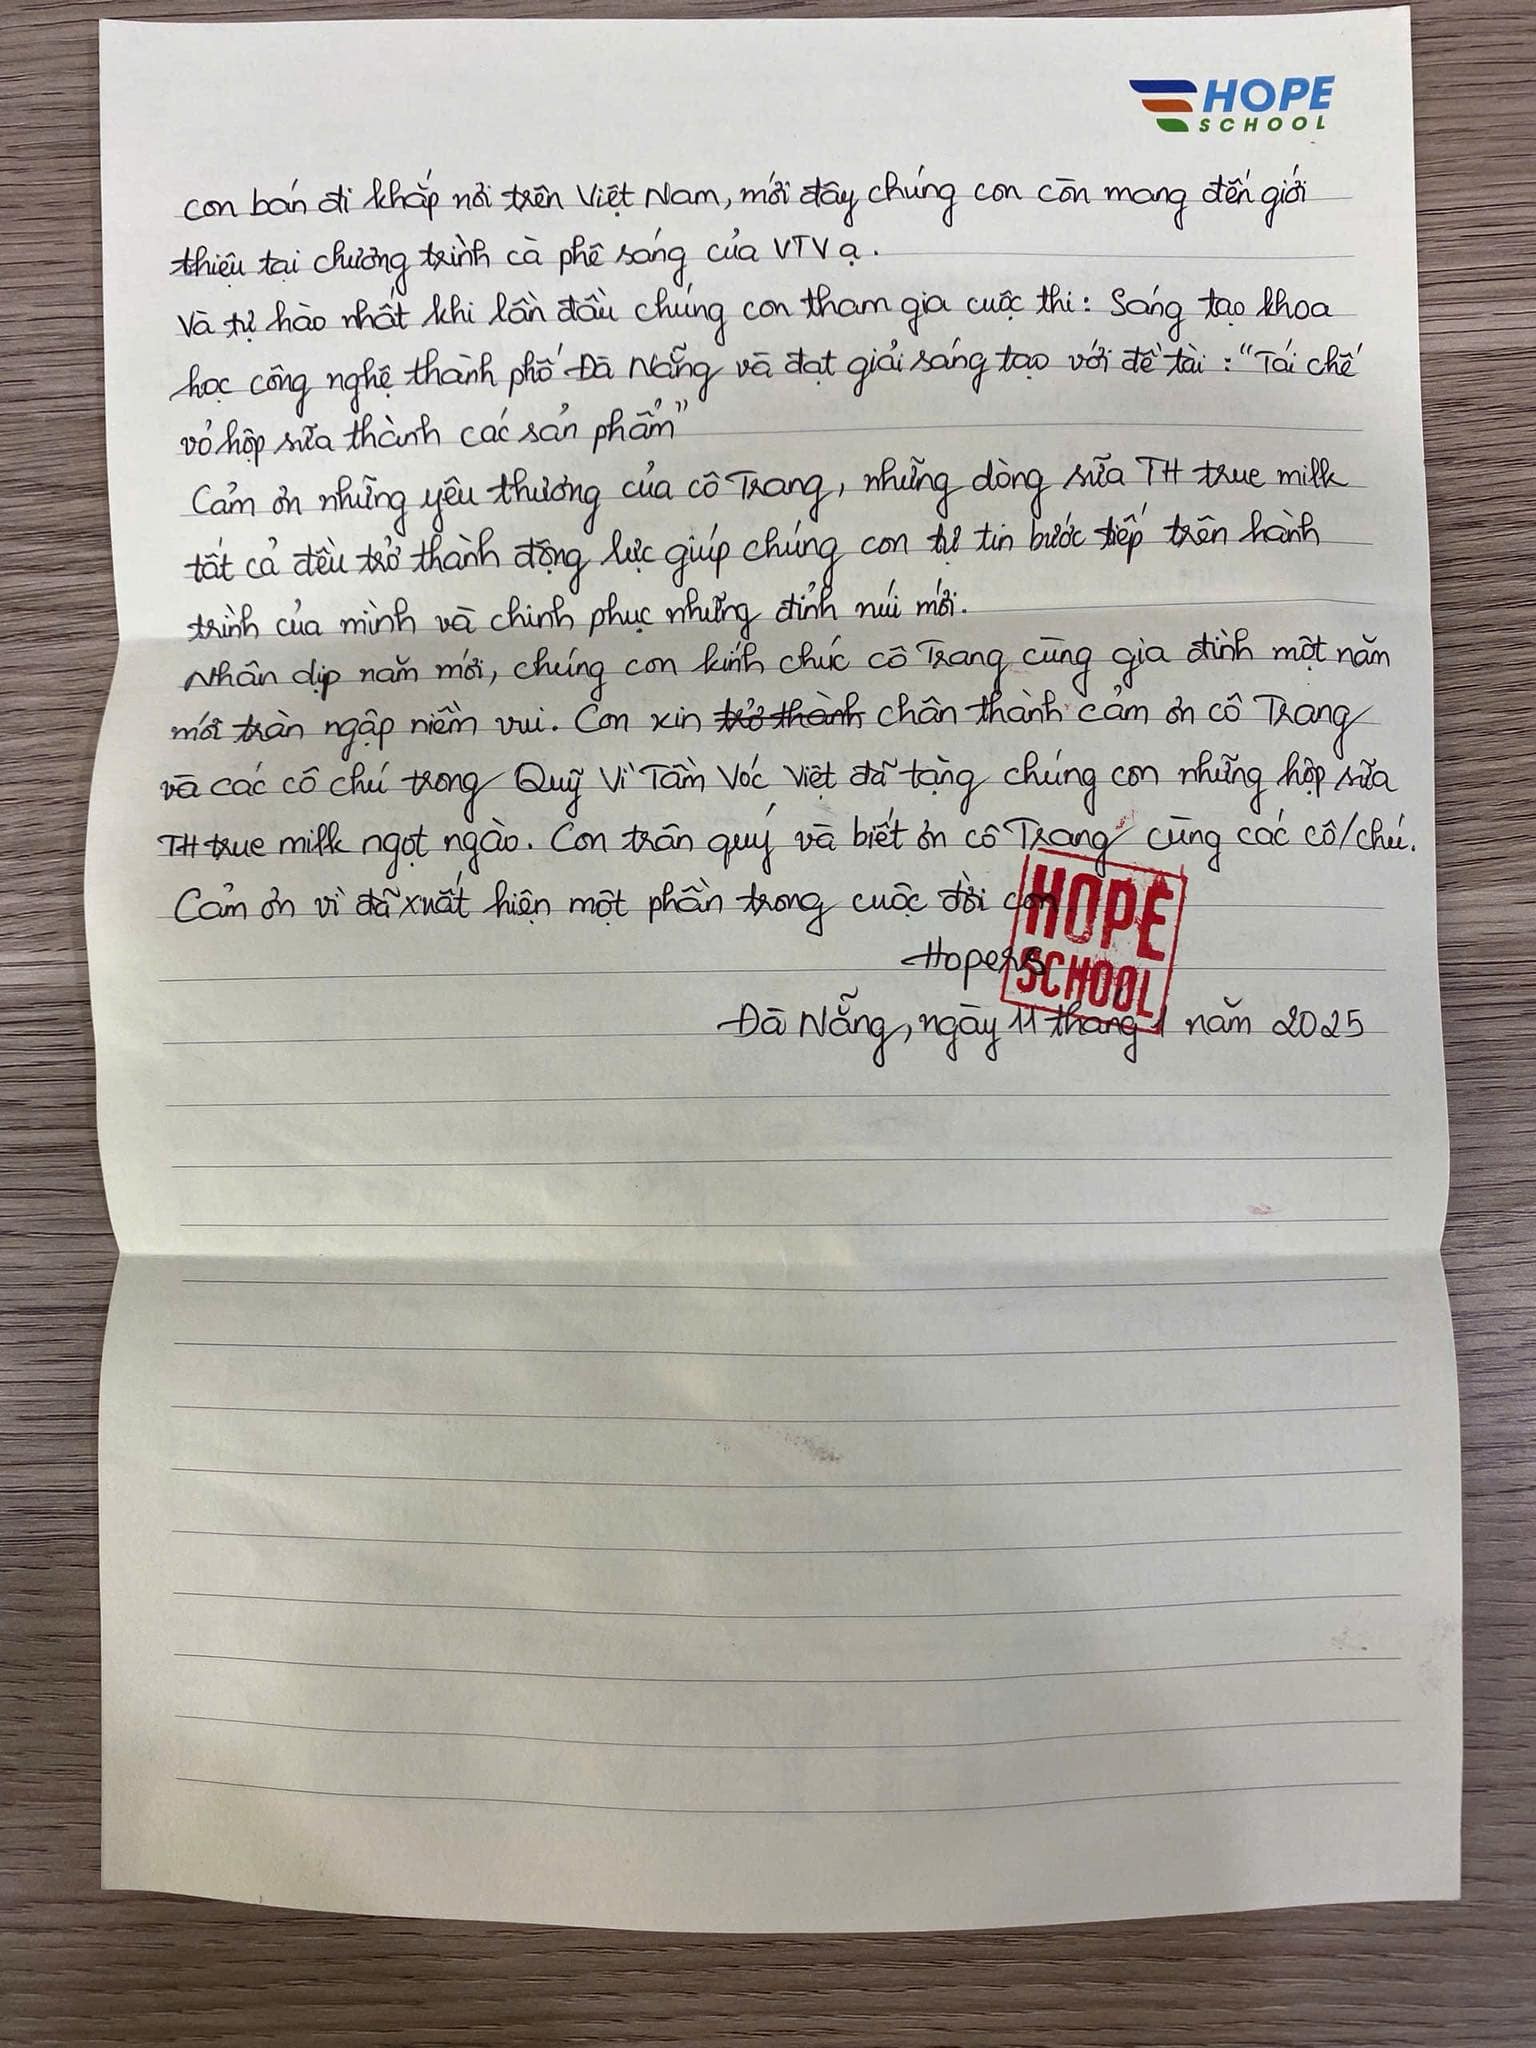 HOPE
SCHOOL
con bán đi khắp nơi trên Việt Nam, mới đây chúng con còn mang đến giới
thiệu tại chương trình cà phê sáng của VTV ạ.
Và tự hào nhất khi lần đầu chúng con tham gia cuộc thi: Sáng tạo khoa
học công nghệ thành phố Đà Nẵng và đạt giải sáng tạo với đề tài: "Tái chế
vỏ hộp sữa thành các sản phẩm"
Cảm ơn những yêu thương của cô Trang, những dòng sữa TH true milk
tất cả đều trở thành động lực giúp chúng con tự tin bước tiếp trên hành
trình của mình và chinh phục những đỉnh núi mới.
Nhân dịp năm mới, chúng con kính chúc cô Trang cùng gia đình một năm
mới tràn ngập niềm vui. Con xin trở thành chân thành cảm ơn cô Trang
và các cô chú trong Quỹ Vì Tầm Vóc Việt đã tặng chúng con những hộp sữa
TH true milk ngọt ngào. Con trân quý và biết ơn cô Trang cùng các cô/chú.
Cảm ơn vì đã xuất hiện một phần trong cuộc đời con
Hopers
HOPE
SCHOOL
Đà Nẵng, ngày 11 tháng 1 năm 2025